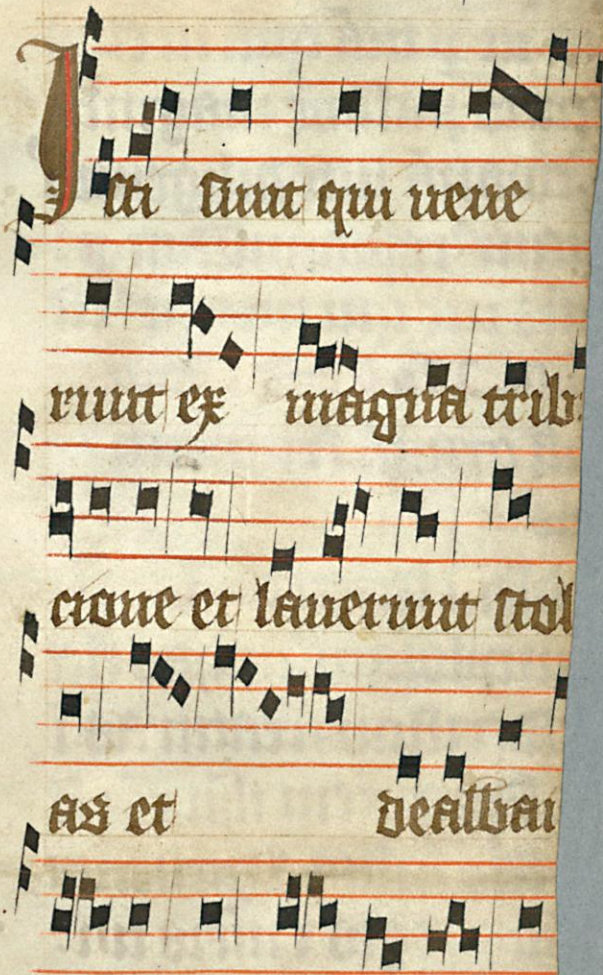 Isti sunt qui uene
runt ex magna trib
cione et lauerunt stol
as et dealbau